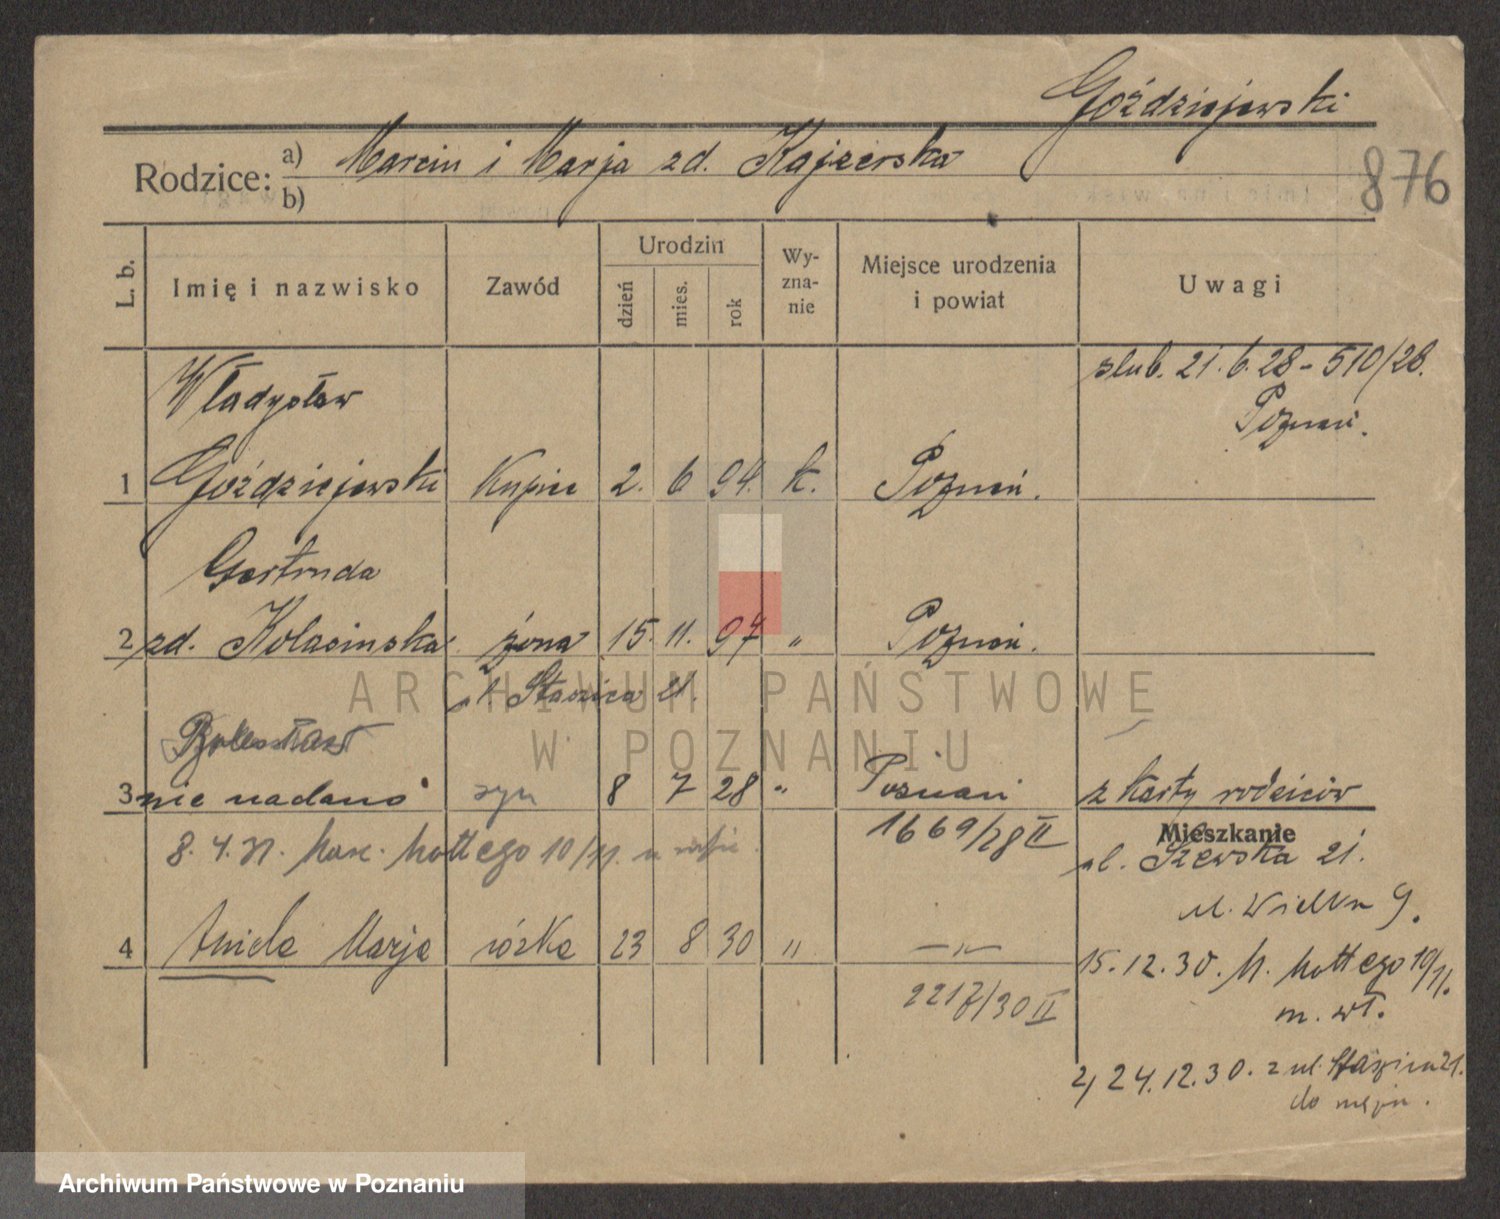 Goździejewski
Rodzice: a) Marcin i Marja zd. Kajzerska
b)
876
L. b. Imię i nazwisko Zawód Urodzin dzień mies. rok Wy-zna-nie Miejsce urodzenia i powiat Uwagi
ślub. 21. 6. 28 - 510/28.
Poznań.
Władysław
1 Goździejewski Kupiec 2. 6 94. k. Poznań.
Gertruda
2 zd. Kolasinska żona 15. 11. 97 " Poznań.
ul. Staszica 21.
Bolesław
3 nie nadano syn 8 7 28 " Poznań z karty rodziców
1669/28 II
Mieszkanie
8. 4. 31. Mottego 10/11.
ul. Szewska 21.
ul. Wielka 9.
4 Aniela Marja córka 23 8 30 " —"—
15. 12. 30. Mottego 10/11.
2217/30 II
m. wł.
2) 24. 12. 30. z ul. Staszica 21.
do męża.
ARCHIWUM PAŃSTWOWE
W POZNANIU
Archiwum Państwowe w Poznaniu